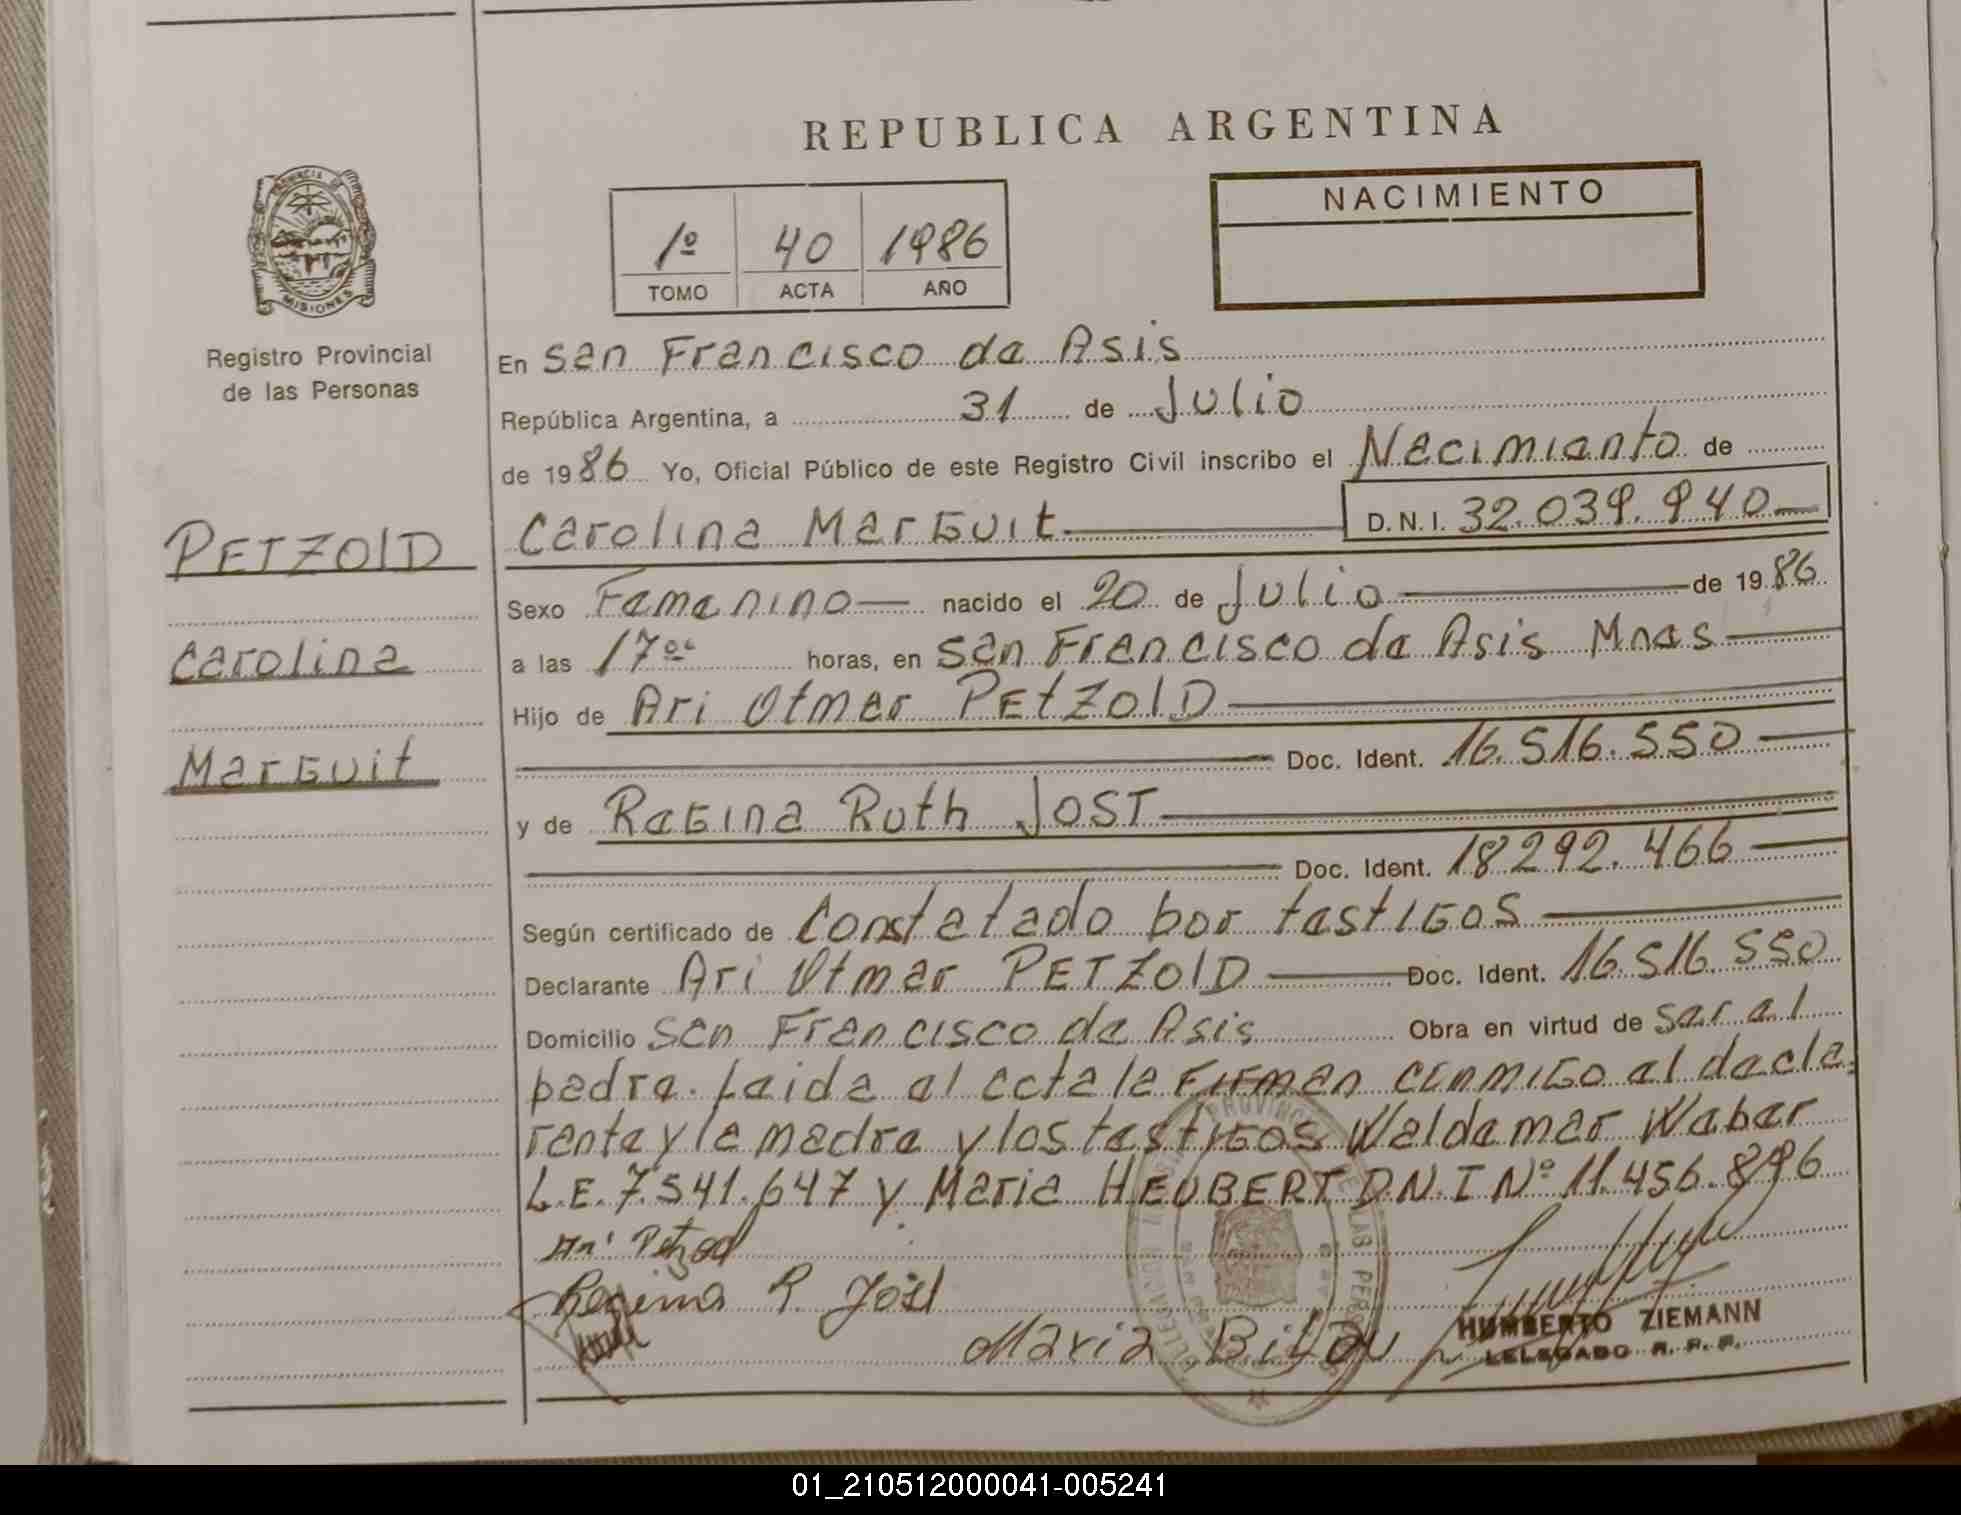 REPUBLICA ARGENTINA
PROVINCIA DE
MISIONES
Registro Provincial
de las Personas
1º 40 1986
TOMO ACTA AÑO
NACIMIENTO
En San Francisco de Asis
República Argentina, a 31 de Julio
de 1986 Yo, Oficial Público de este Registro Civil inscribo el Nacimiento de
PETZOLD
Carolina
Marguit
Carolina Marguit D.N.I. 32.039.940
Sexo Femenino nacido el 20 de Julio de 1986
a las 17 oo horas, en San Francisco de Asis Mnes
Hijo de Ari Otmar PETZOLD
Doc. Ident. 16.516.550
y de Regina Ruth JOST
Doc. Ident. 18292.466
Según certificado de Constatado por testigos
Declarante Ari Otmar PETZOLD Doc. Ident. 16.516.550
Domicilio San Francisco de Asis Obra en virtud de ser el
padre. Leida el acta la Firman conmigo el decla-
rante y la madre y los testigos Waldemar Weber
L.E. 7.541.647 y Maria HEUBERT D.N.I Nº 11.456.896
Regina R. Jost
Maria
HUMBERTO ZIEMANN
DELEGADO R. P. P.
01_210512000041-005241